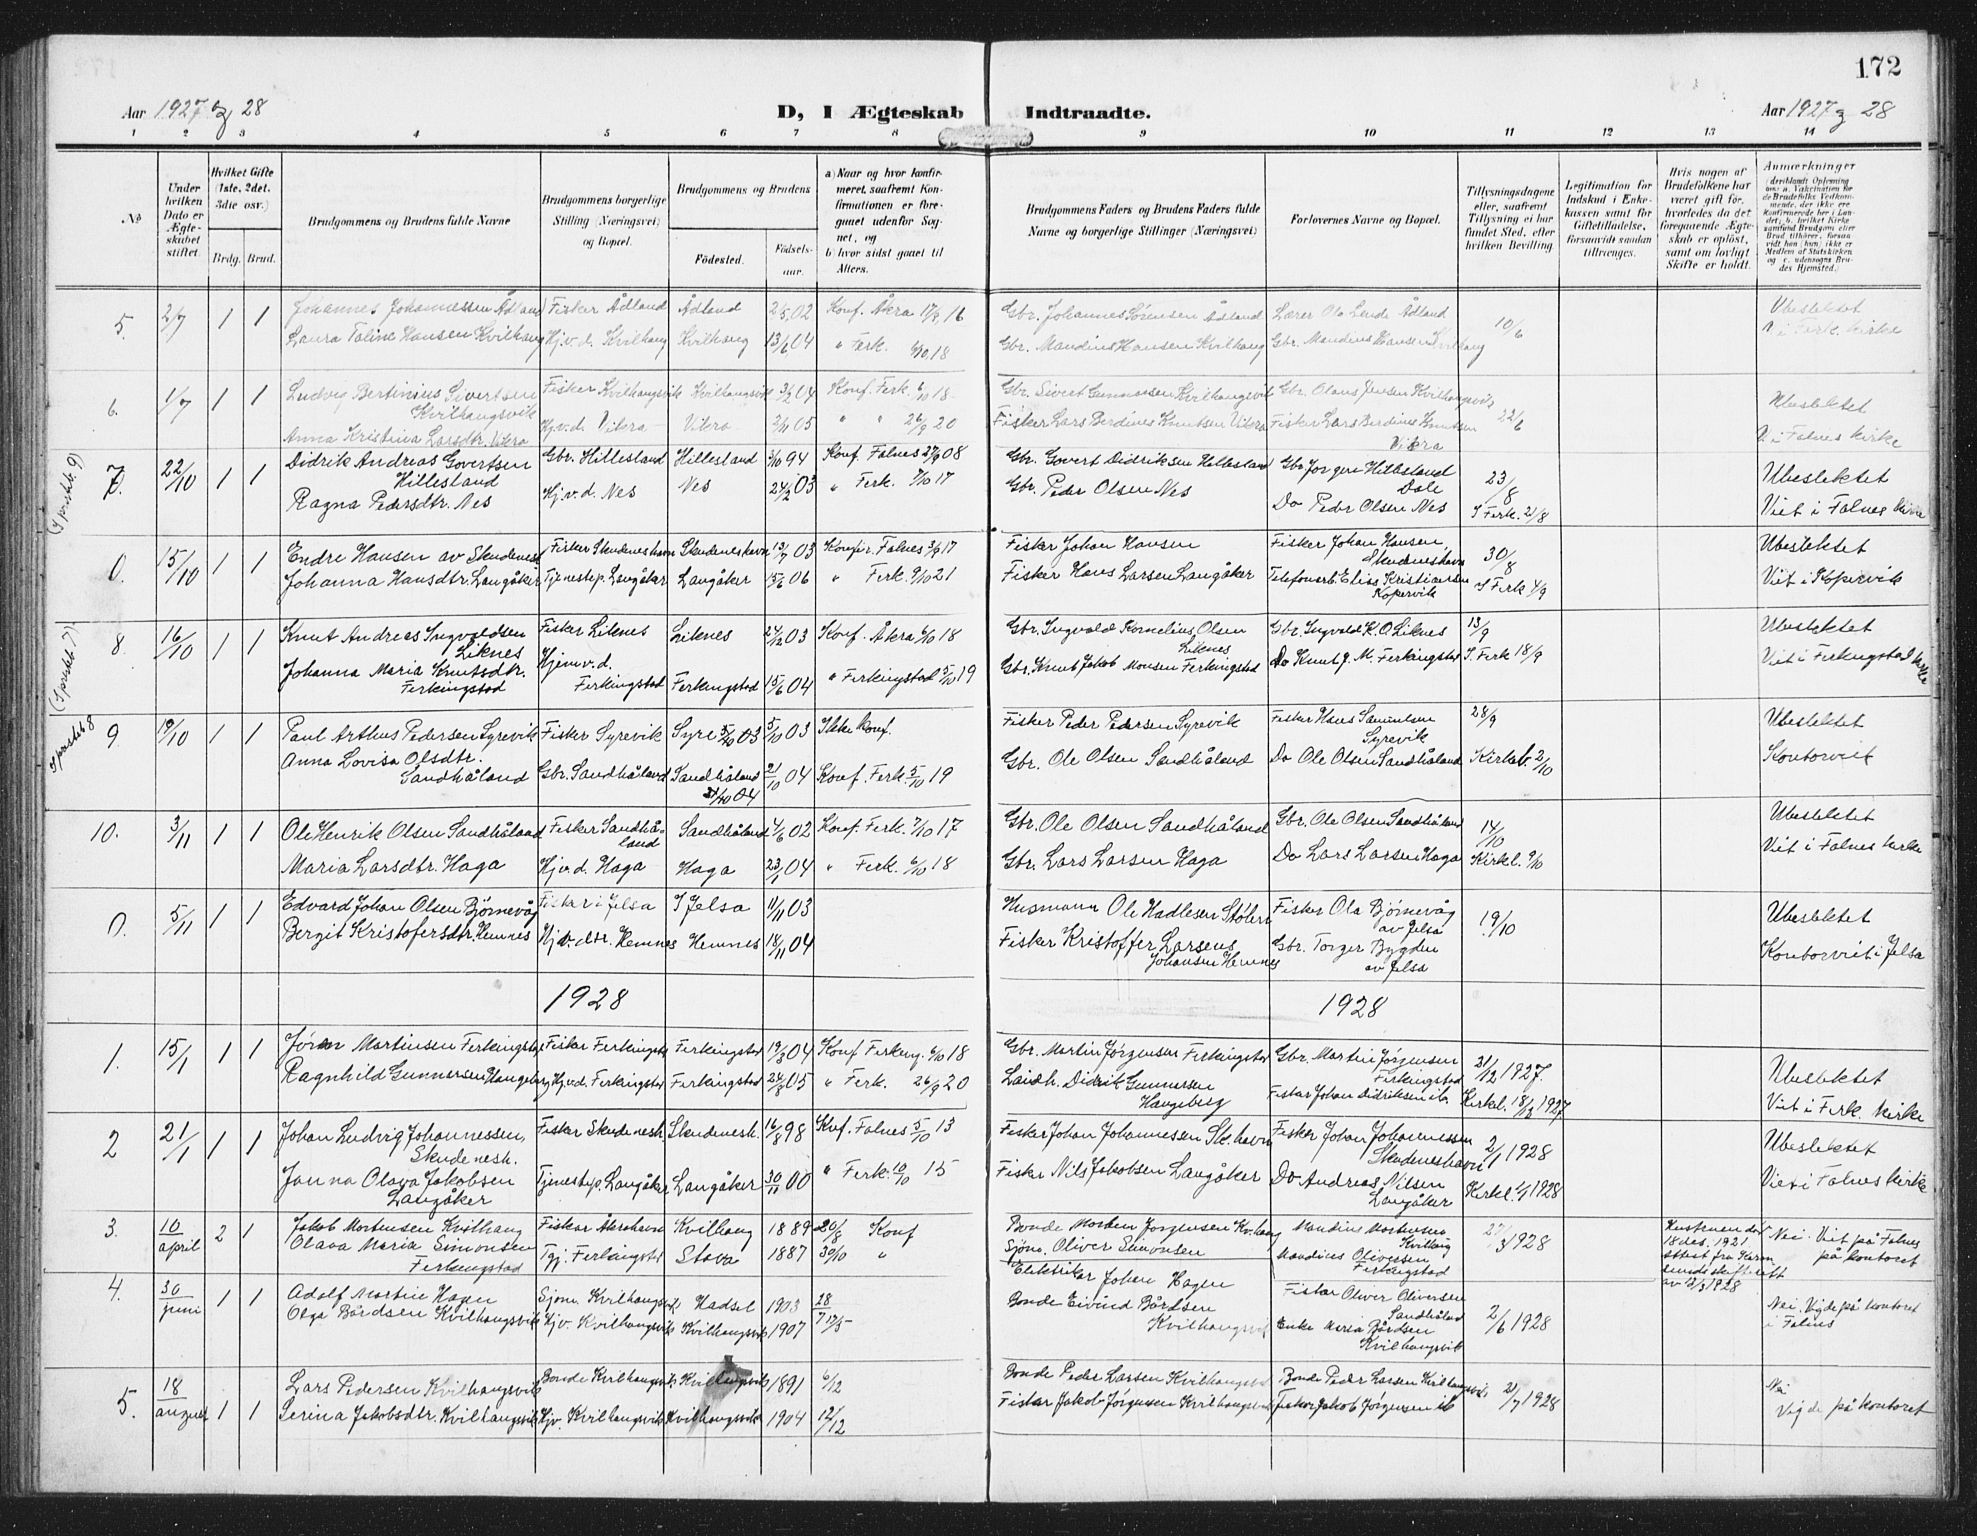 172
Aar 1927 og 28
D, I Ægteskab Indtraadte.
Aar 1927 og 28
1 2 3 4 5 6 7 8 9 10 11 12 13 14
No
Under hvilken Dato er Ægteskabet stiftet.
Hvilket Gifte (1ste, 2det, 3die osv.)
Brdg. Brud.
Brudgommens og Brudens fulde Navne
Brudgommens borgerlige Stilling (Næringsvei) og Bopæl.
Brudgommens og Brudens
Födested.
Födselsaar.
a) Naar og hvor konfirmeret, saafremt Konfirmationen er foregaaet udenfor Sognet, og
b) hvor sidst gaaet til Alters.
Brudgommens Faders og Brudens Faders fulde Navne og borgerlige Stillinger (Næringsvei)
Forlovernes Navne og Bopæl.
Tillysningsdagene eller, saafremt Tillysning ei har fundet Sted, efter hvilken Bevilling
Legitimation for Indskud i Enkekassen samt for Giftetilladelse, forsaavidt saadan tiltrænges.
Hvis nogen af Brudefolkene har været gift før, hvorledes da det foregaaende Ægteskab er oplöst, samt om lovligt Skifte er holdt.
Anmærkninger
5. 2/7 1 1 Johannes Johannessen Ådland Fisker Ådland Ådland 2/5 02 Konf. Åkra 17/9 16 Gbr. Johannes Sørensen Ådland Lærer Ola Lende Ådland 10/6 Ubeslektet
Laura Taline Hansen Kvilhaug Hj.v.d. Kvilhaug Kvilhaug 13/6 04 " Ferk. 6/10 18 Gbr. Mandius Hansen Kvilhaug Gbr. Mandius Hansen Kvilhaug V. i Ferk. kirke
6. 1/7 1 1 Ludvig Bertinius Sivertsen Fisker Kvilhaugsvik Kvilhaugsvik 3/2 04 Konf. Ferk. 6/10 18 Gbr. Sivert Gunnarsen Kvilhaugsvik Gbr. Olaus Jensen Kvilhaugsvik 22/6 Ubeslektet
Kvilhaugsvik
Anna Kristina Larsdtr. Vikra Hj.v.d. Vikra Vikra 2/11 05 " " 26/9 20 Fisker Lars Berdines Knutsen Vikra Fisker Lars Berdines Knutsen Vikra V. i Falnes kirke
(I prstb. 9)
7. 22/10 1 1 Didrik Andreas Govertsen Gbr. Hillesland Hillesland 3/10 94 Konf. Falnes 27/9 08 Gbr. Govert Didriksen Hillesland Gbr. Jørgen Hillesland 23/8 Ubeslektet
Hillesland Dale
Ragna Pedersdtr. Nes Hj.v.d. Nes Nes 24/2 03 " Ferk. 7/10 17 Gbr. Peder Olsen Nes Do Peder Olsen Nes I Ferk. 21/8 Viet i Falnes kirke
0. 15/10 1 1 Endre Hansen av Skudenesh. Fisker Skudeneshavn Skudeneshavn 13/7 03 Konfir. Falnes 3/9 17 Fisker Johan Hansen Fisker Johan Hansen, 30/8 Ubeslektet
Skudeneshavn
Johanna Hansdtr. Langåker Tjenestep. Langåker Langåker 15/6 06 " Ferk. 9/10 21 Fisker Hans Larsen Langåker Telefonarb. Elias Kristiansen I Ferk 4/9 Viet i Kopervik
Kopervik
(I prstet 7)
8. 16/10 1 1 Knut Andreas Ingvaldsen Fisker Liknes Liknes 24/12 03 Konf. Åkra 6/10 18 Gbr. Ingvald Kornelius Olsen Gbr. Ingvald K. O. Liknes 13/9 Ubeslektet
Liknes Liknes
Johanna Maria Knutsdtr. Hjemv.d. Ferkingstad Ferkingstad 15/6 04 " Ferkingstad 5/10 19 Gbr. Knut Jakob Monsen Ferkingstad Do Knut J. M. Ferkingstad I. Ferk 18/9 Viet i Ferkingstad kirke
Ferkingstad
I prstet 8
9. 19/10 1 1 Paul Arthus Pedersen Syrevik Fisker Syrevik Syre 5/10 03 5/10 03 Ikke konf. Fisker Peder Pedersen Syrevik Fisker Hans Samuelsen 28/9 Ubeslektet
Syrevik
Anna Lovisa Olsdtr. Sandhåland Gbr. Sandhåland Sandhåland 21/10 04 21/10 04 Konf. Ferk. 5/10 19 Gbr. Ole Olsen Sandhåland Do Ole Olsen Sandhåland Kirkel. 2/10 Kontorviet
10. 3/11 1 1 Ole Henrik Olsen Sandhåland Fisker Sandhåland Sandhåland 4/6 02 Konf. Ferk. 7/10 17 Gbr. Ole Olsen Sandhåland Gbr. Ole Olsen Sandhåland 14/10 Ubeslektet
Maria Larsdtr. Haga Hj.v.d. Haga Haga 23/1 04 " Ferk. 6/10 18 Gbr. Lars Larsen Haga Do Lars Larsen Haga Kirkl. 9/10 Viet i Falnes kirke
0. 5/11 1 1 Edvard Johan Olsen Bjørnevåg Fisker i Jelsa I Jelsa 11/11 03 Husmann Ole Hadlesen Fisker Ola Bjørnevåg 19/10 Ubeslektet
av Jelsa
Bergit Kristofersdtr. Hemnes Hj.v.dtr. Hemnes Hemnes 18/11 04 Fisker Kristoffer Larsens Gbr. Torger Bygden Kontorviet i Jelsa
Johansen Hemnes av Jelsa
1928 1928
1. 15/1 1 1 Martinsen Ferkingstad Fisker Ferkingstad Ferkingstad 19/3 04 Konf Ferking. 6/10 18 Gbr. Martin Jørgensen Ferkingstad Gbr. Martin Jørgensen 31/12 1927. Ubeslektet
Ferkingstad
Ragnhild Gunnersen Haugeberg Hj.v.d. Ferkingstad Ferkingstad 24/8 05 " Ferk. 26/9 20 Didrik Gunnersen Fisker Johan Didriksen ib. Kirkel. 18/12 1927 Viet i Ferk. kirke
Haugeberg
2 21/1 1 1 Johan Ludvig Johannessen, Fisker Skudenesh. Skudenesh. 16/8 98 Kof. Falnes 5/10 13 Fisker Johan Johannessen Sk.havn Fisker Johan Johannessen 2/1 1928 Ubeslektet
Skudenesh. Skudeneshavn
Janna Olava Jakobsen Tjenestep. Langåker Langåker 30/11 00 " Ferk. 10/10 15 Fisker Nils Jakobsen Langåker Do Andreas Nilsen Kirkl. 1/1 1928 Viet i Falnes kirke
Langåker Langåker
3. 10/april 2 1 Jakob Mortensen Kvilhaug Fisker Åkrahavn Kvilhaug 1889 20/8 Konf Bonde Morten Jørgensen Kvilhaug Mandius Mortensen 1928 Hustruen død 18 des. 1921 attest fra Karmsunds skifterett av 2/3 1928 Nei. Viet på Falnes
Kvilhaug
Olava Maria Simonsen Tgj. Ferkingstad Stava 1887 30/10 " Sjøm. Oliver Simonsen Mandius Oliversen på kontoret
Ferkingstad Ferkingstad
4. 30/juni 1 1 Adolf Martin Hagen Sjøm. Kvilhaugsvik Hadsel 1903 28/7 Elektriker Johan Hagen Fisker Oliver Oliversen 2/6 1928 Nei. Vigde på kontoret
Sandhåland i Falnes
Olga Bårdsen Kvilhaugsvik Hjv. Kvilhaugsvik Kvilhaugsvik 1907 Bonde Eivind Bårdsen Enke Maria Bårdsen
Kvilhaugsvik Kvilhaugsvik
5. 18/august 1 1 Lars Pedersen Kvilhaugsvik Bonde Kvilhaugsvik Kvilhaugsvik 1891 6/12 Bonde Peder Larsen Kvilhaugsvik Bonde Peder Larsen Kvilhaugsvik 21/7 1928 Nei
Serina Jakobsdtr. Kvilhaugsvik Hjv. Kvilhaugsvik Kvilhaugsvik 1904 12/12 Fisker Jakob Jørgensen Kvilhaugsvik Fisker Jakob Jørgensen ib Vigde på kontoret